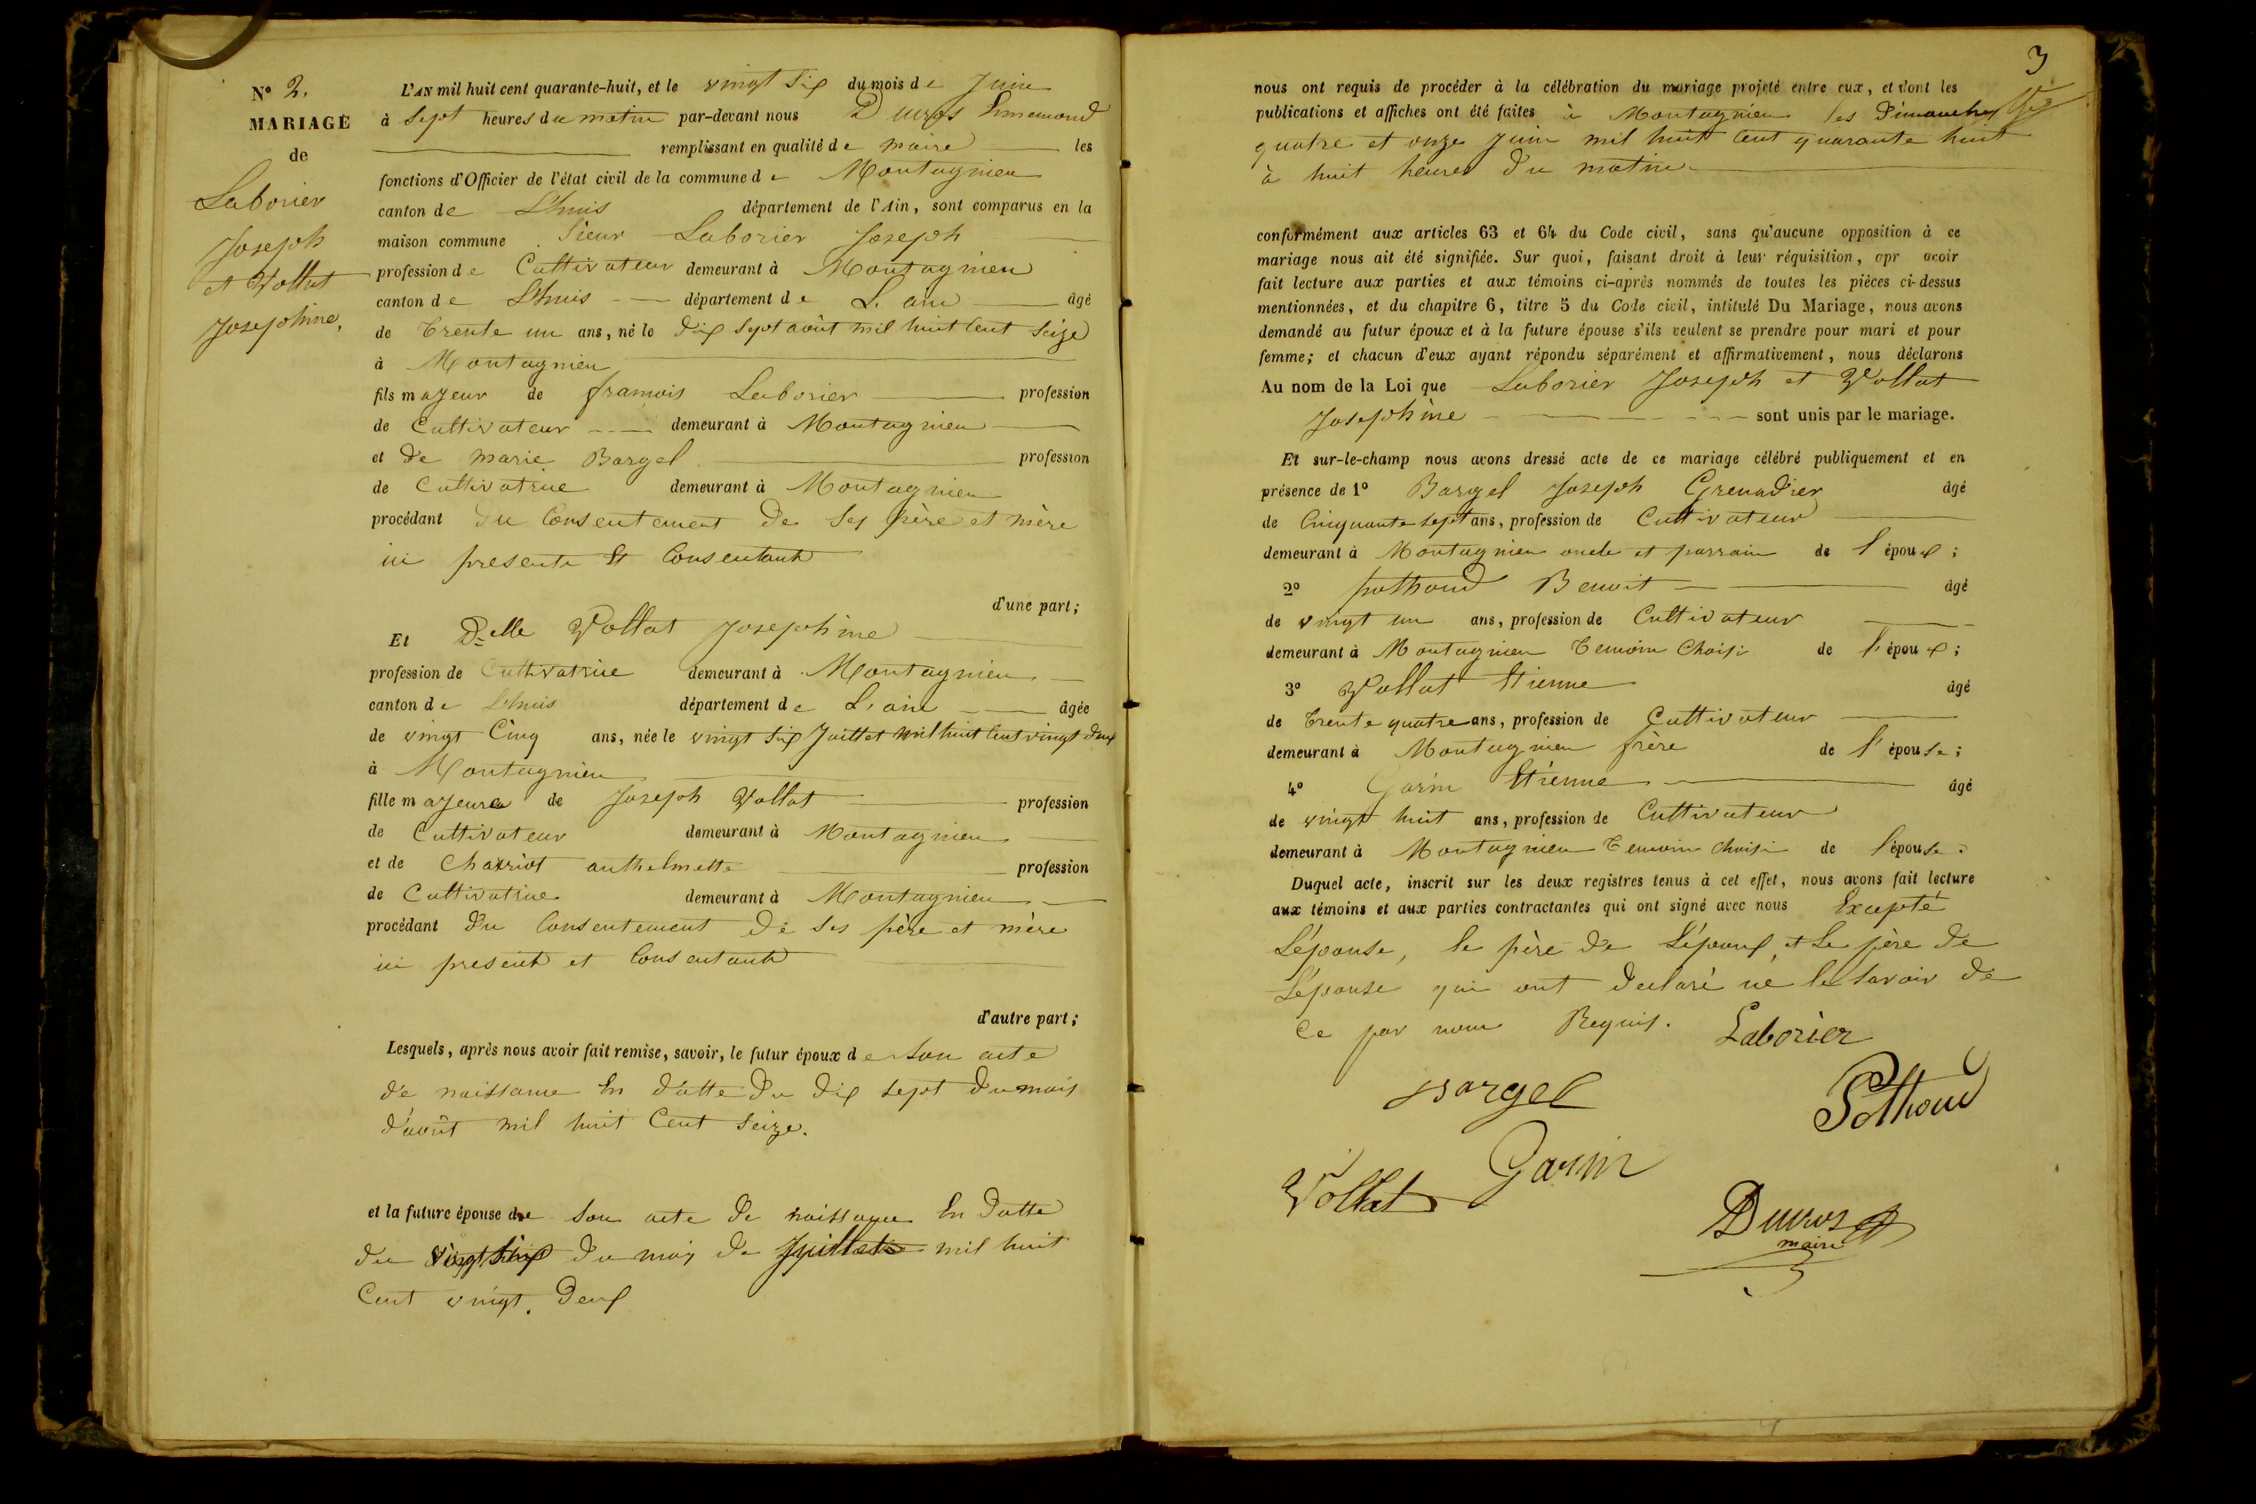 N° 2.
MARIAGE
de
Laborier
Joseph
et Vollat
Josephine,
L'AN mil huit cent quarante-huit, et le vingt six du mois de Juin
à sept heures du matin par-devant nous Ennemond
remplissant en qualité de maire les
fonctions d'Officier de l'état civil de la commune de Montagnieu
canton de Lhuis département de l'Ain, sont comparus en la
maison commune Sieur Laborier Joseph
profession de Cultivateur demeurant à Montagnieu
canton de Lhuis département de L'ain âgé
de Trente un ans, né le dix sept août mil huit cent seize
à Montagnieu
fils majeur de francois Laborier profession
de Cultivateur demeurant à Montagnieu
et de marie Bargel profession
de Cultivatrice demeurant à Montagnieu
procédant du Consentement de ses père et mère
ici presents et Consentants
d'une part;
Et Delle Vollat Josephine
profession de Cultivatrice demeurant à Montagnieu
canton de Lhuis département de L'ain âgée
de vingt Cinq ans, née le vingt six Juillet mil huit Cent vingt deux
à Montagnieu
fille majeure de Joseph Vollat profession
de Cultivateur demeurant à Montagnieu
et de Charriot anthelmette profession
de Cultivatrice demeurant à Montagnieu
procédant du Consentement de ses père et mère
ici presents et Consentants
d'autre part;
Lesquels, après nous avoir fait remise, savoir, le futur époux de son acte
de naissance En datte du dix sept du mois
d'août mil huit Cent seize.
et la future épouse de son acte de naissance En datte
du vingt six du mois de Juillet mil huit
Cent vingt. deux
3
nous ont requis de procéder à la célébration du mariage projeté entre eux, et dont les
publications et affiches ont été faites à Montagnieu les Dimanches
quatre et onze Juin mil huit Cent quarante huit
à huit heures du matin.
conformément aux articles 63 et 64 du Code civil, sans qu'aucune opposition à ce
mariage nous ait été signifiée. Sur quoi, faisant droit à leur réquisition, apr avoir
fait lecture aux parties et aux témoins ci-après nommés de toutes les pièces ci-dessus
mentionnées, et du chapitre 6, titre 5 du Code civil, intitulé Du Mariage, nous avons
demandé au futur époux et à la future épouse s'ils veulent se prendre pour mari et pour
femme; et chacun d'eux ayant répondu séparément et affirmativement, nous déclarons
Au nom de la Loi que Laborier Joseph et Vollat
Josephine sont unis par le mariage.
Et sur-le-champ nous avons dressé acte de ce mariage célébré publiquement et en
présence de 1° Bargel Joseph Grenadier âgé
de Cinquante sept ans, profession de Cultivateur
demeurant à Montagnieu oncle et parrain de l'époux;
2° pothoud Benoit âgé
de vingt un ans, profession de Cultivateur
demeurant à Montagnieu Temoin Choisi de l'époux;
3° Vollat Etienne âgé
de Trente quatre ans, profession de Cultivateur
demeurant à Montagnieu frère de l'épouse;
4° Garin Etienne âgé
de vingt huit ans, profession de Cultivateur
demeurant à Montagnieu Temoin choisi de l'épouse.
Duquel acte, inscrit sur les deux registres tenus à cet effet, nous avons fait lecture
aux témoins et aux parties contractantes qui ont signé avec nous Excepté
L'épouse, le père de L'époux et Le père de
L'épouse qui ont declaré ne le savoir de
Ce par nous Requis. Laborier
Bargel
Pothoud
Garin
Vollat
maire